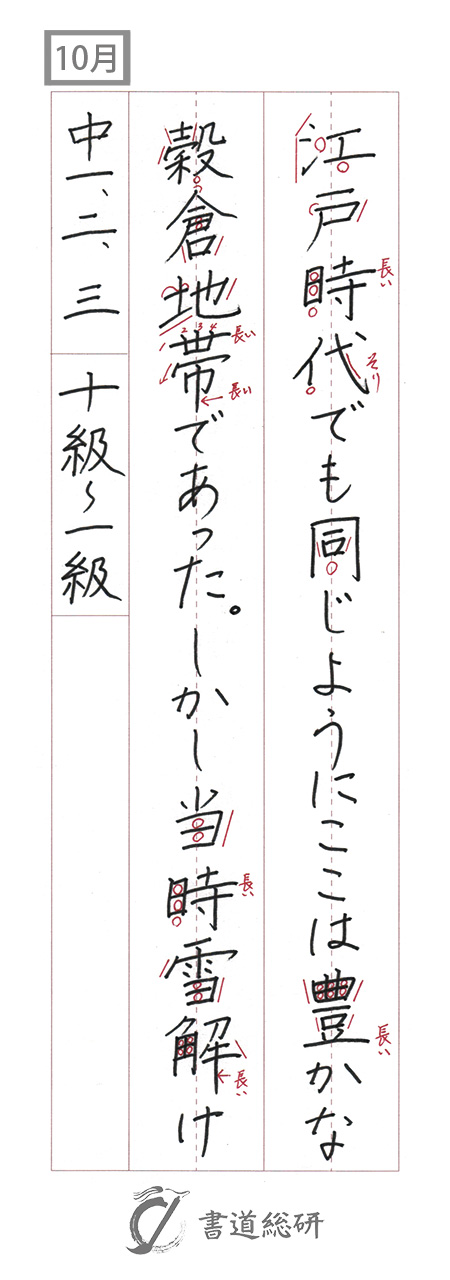 10月
江戸時代でも同じようにここは豊かな
長い
そり
長い
穀倉地帯であった。しかし当時雪解け
2 3 4
長い
長い
長い
長い
中一、二、三 十級〜一級
書道総研